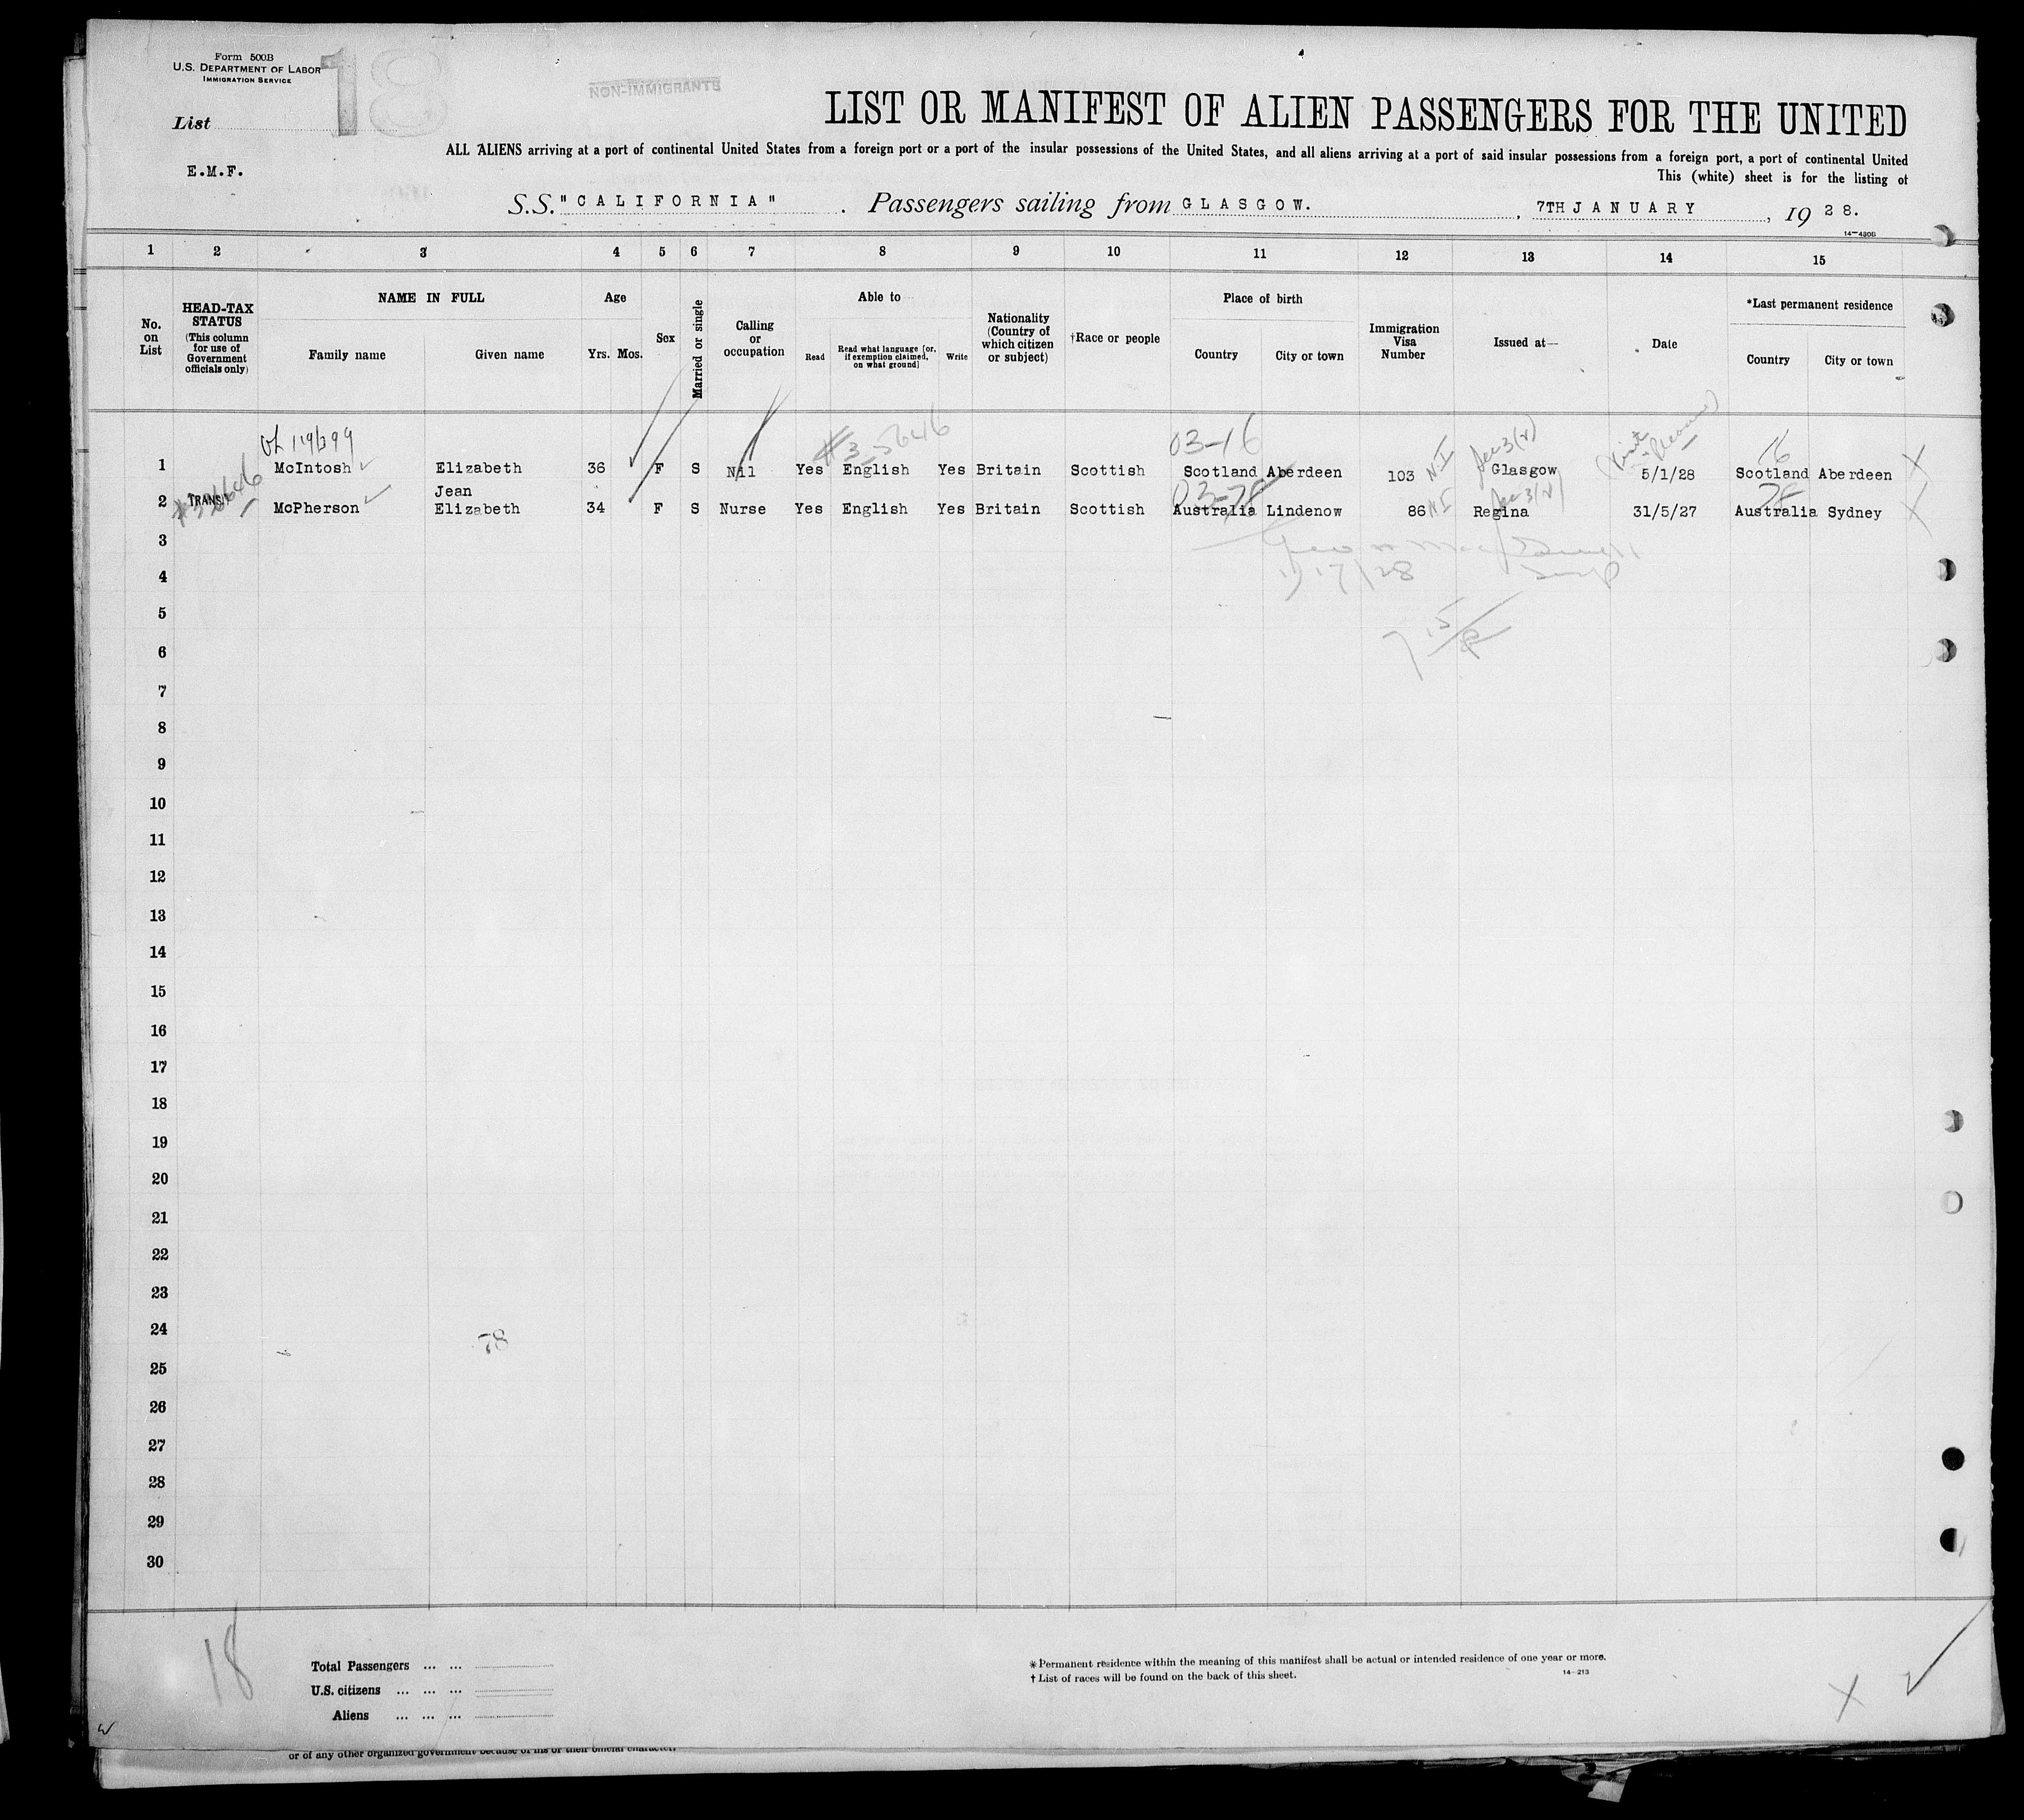 Form 500B
U.S. DEPARTMENT OF LABOR
IMMIGRATION SERVICE
18
NON-IMMIGRANTS
List
E.M.F.
LIST OR MANIFEST OF ALIEN PASSENGERS FOR THE UNITED
ALL ALIENS arriving at a port of continental United States from a foreign port or a port of the insular possessions of the United States, and all aliens arriving at a port of said insular possessions from a foreign port, a port of continental United
This (white) sheet is for the listing of
S.S. "CALIFORNIA" . Passengers sailing from GLASGOW. , 7TH JANUARY , 19 28.
14-430B
1 2 3 4 5 6 7 8 9 10 11 12 13 14 15
No. on List
HEAD-TAX STATUS (This column for use of Government officials only)
NAME IN FULL
Family name Given name
Age
Yrs. Mos.
Sex
Married or single
Calling or occupation
Able to
Read Read what language [or, if exemption claimed, on what ground] Write
Nationality (Country of which citizen or subject)
†Race or people
Place of birth
Country City or town
Immigration Visa Number
Issued at—
Date
*Last permanent residence
Country City or town
03-16 16
1 McIntosh Elizabeth 36 F S Nil Yes English Yes Britain Scottish Scotland Aberdeen 103 N.I. Glasgow 5/1/28 Scotland Aberdeen X
03-78 78
2 TRANSIT McPherson Jean Elizabeth 34 F S Nurse Yes English Yes Britain Scottish Australia Lindenow 86 N.I. Regina 31/5/27 Australia Sydney X
3
4 1/17/28
5
6
7
8
9
10
11
12
13
14
15
16
17
18
19
20
21
22
23
24 78
25
26
27
28
29
30
18
Total Passengers ... ...
U.S. citizens ... ... ...
Aliens ... ... ...
*Permanent residence within the meaning of this manifest shall be actual or intended residence of one year or more.
†List of races will be found on the back of this sheet. 14-213
X
or of any other organized government because of his or their official character.